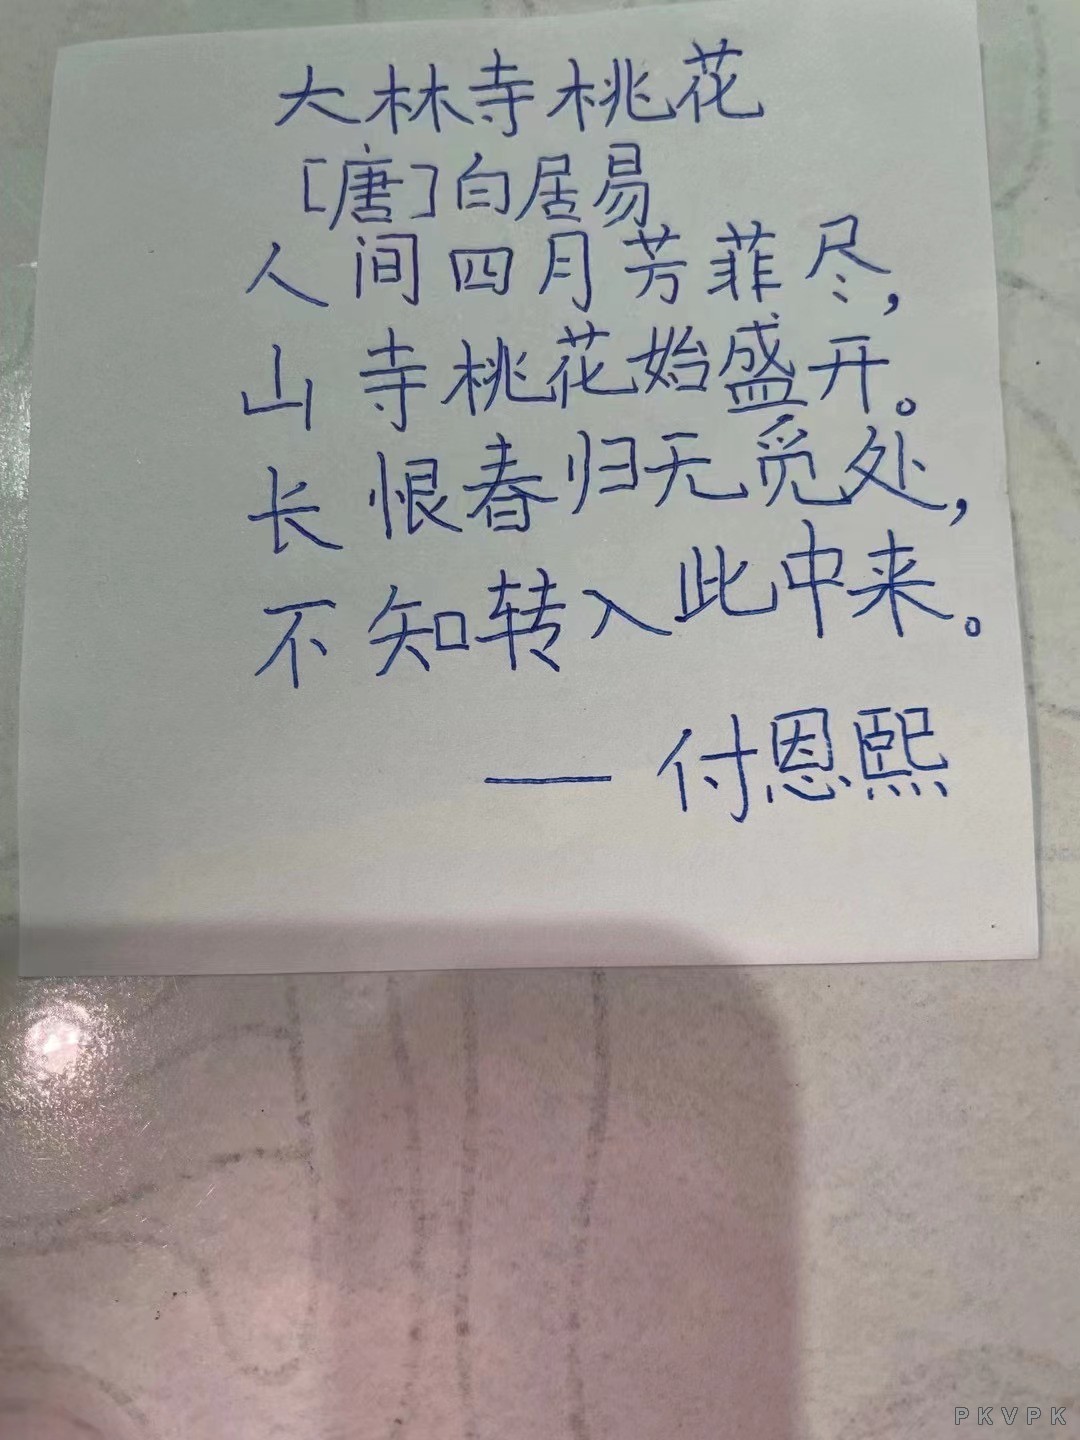 大林寺桃花
[唐]白居易
人间四月芳菲尽,
山寺桃花始盛开。
长恨春归无觅处,
不知转入此中来。
——付恩熙
PKVPK